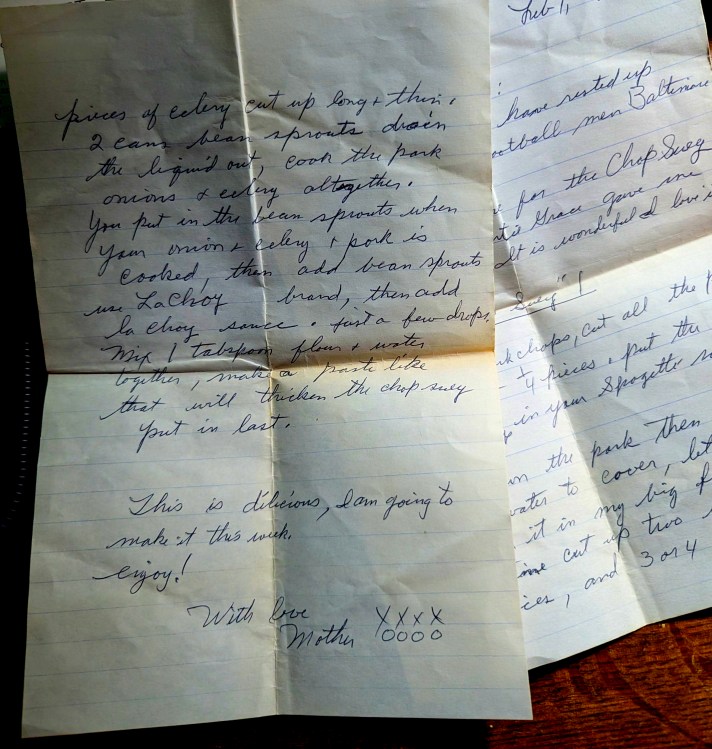 pieces of celery cut up long & thin.
2 cans bean sprouts drain
the liquid out, cook the pork
onions & celery altogether.
You put in the bean sprouts when
your onion & celery & pork is
cooked, then add bean sprouts
use LaChoy brand, then add
la choy sauce. just a few drops.
Mix 1 tabspoon flour & water
together, make a paste like
that will thicken the chop suey
put in last.
This is dilicious, I am going to
make it this week.
enjoy!
With love XXXX
Mother OOOO
Feb 1,
have rested up
football men Baltimore
for the Chop Suey
Grace gave me
It is wonderful I love
Suey"!
chops, cut all the
1/4 pieces, put the
in your Spagette
the pork then
water to cover, let
it in my big
cut up two
and 3 or 4